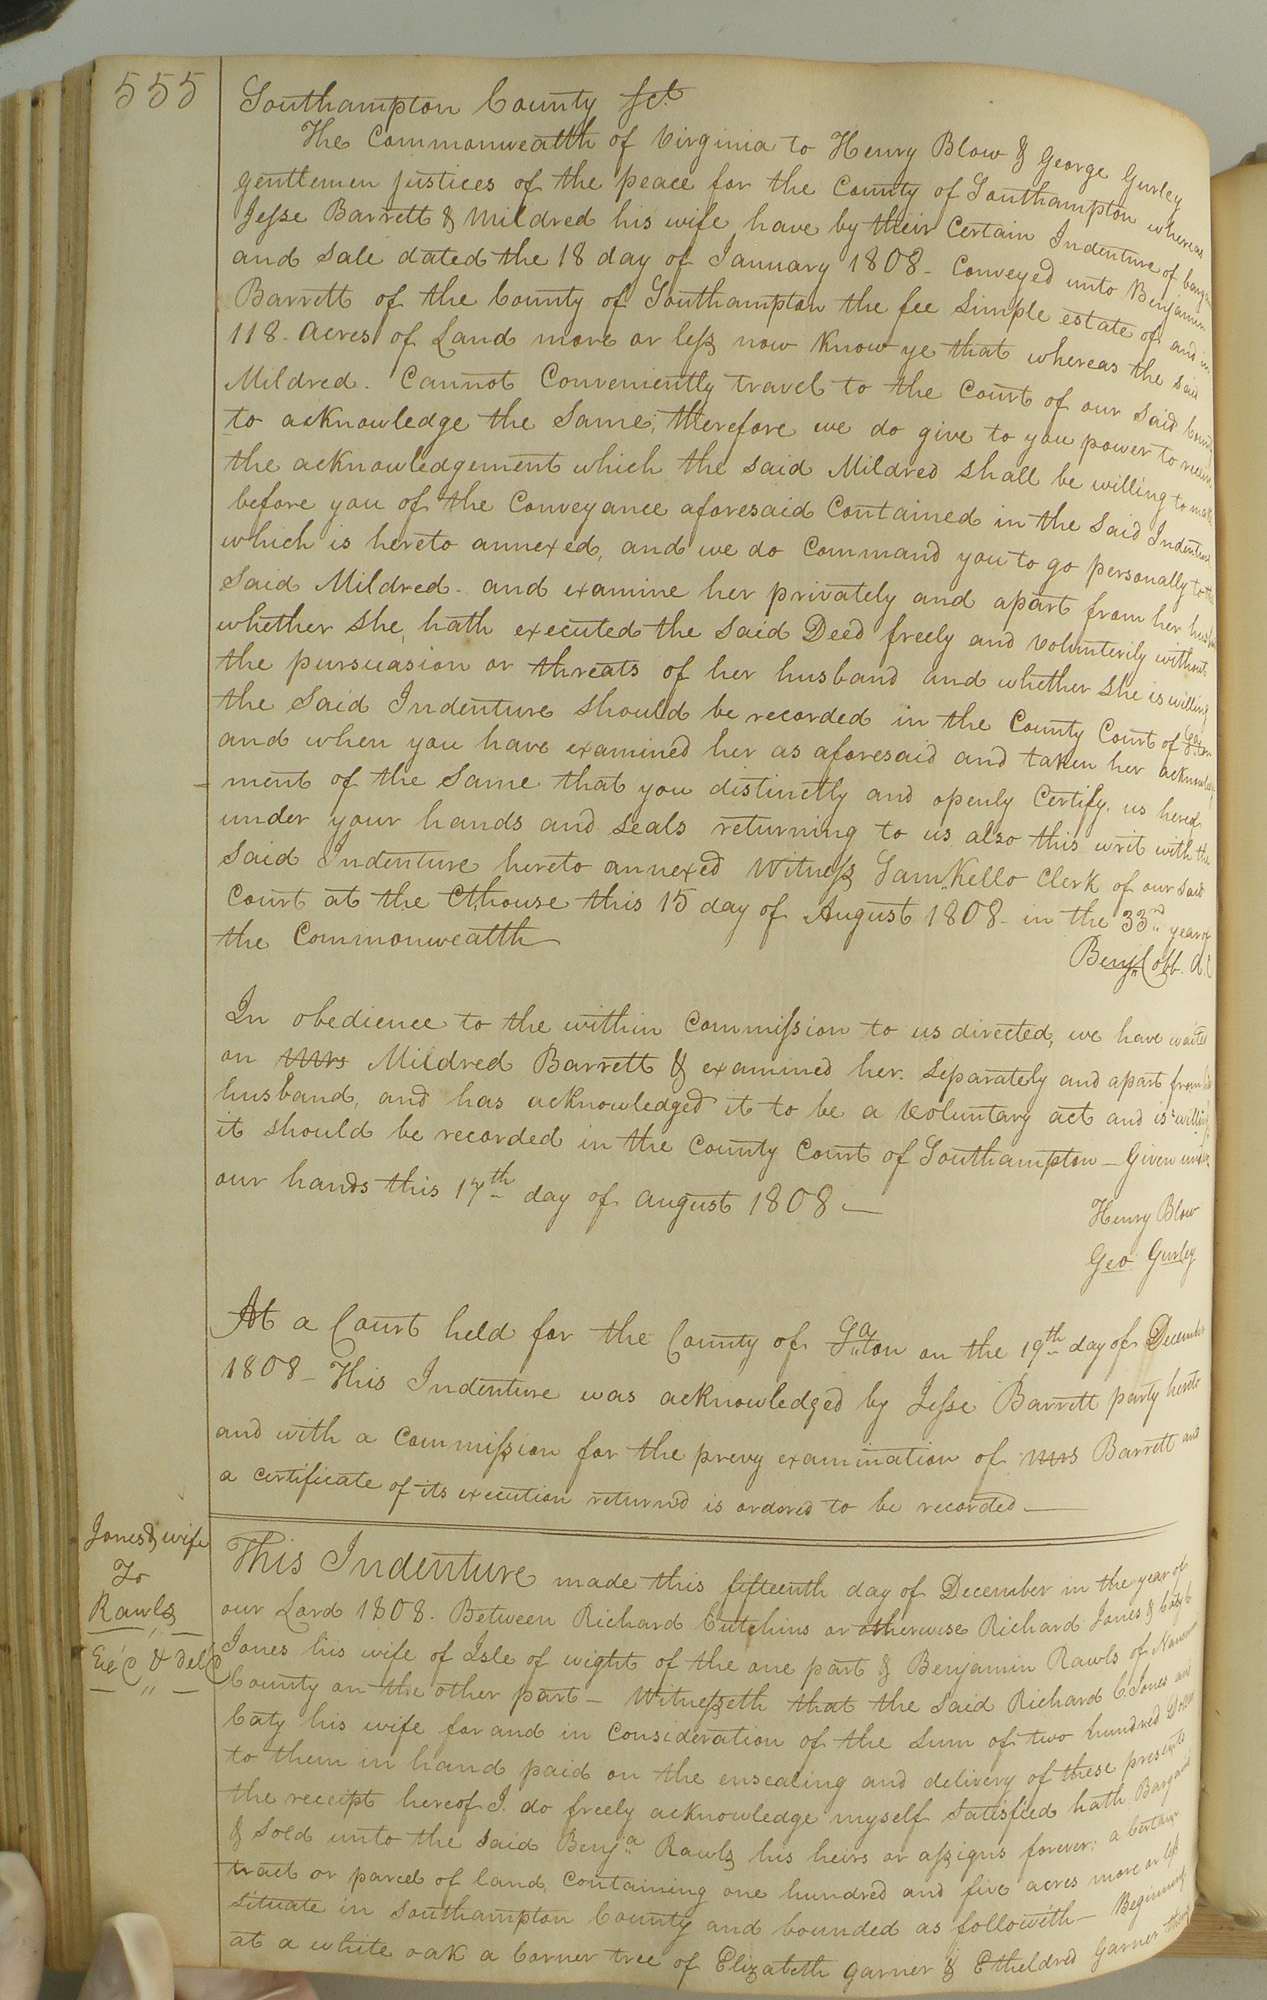 555
Southampton County Sct
The Commonwealth of Virginia to Henry Blow & George Gurley
gentlemen justices of the peace for the County of Southampton whereas
Jesse Barrett & Mildred his wife have by their Certain Indenture of bargain
and sale dated the 18 day of January 1808 - Conveyed unto Benjamin
Barrett of the County of Southampton the fee simple estate of and in
118. acres of Land more or less now Know ye that whereas the said
Mildred. Cannot Conveniently travel to the Court of our said County
to acknowledge the same, therefore we do give to you power to receive
the acknowledgement which the said Mildred shall be willing to make
before you of the Conveyance aforesaid Contained in the said Indenture
which is hereto annexed, and we do Command you to go personally to the
said Mildred. and examine her privately and apart from her husband
whether she, hath executed the said Deed freely and volunterily without
the pursuasion or threats of her husband and whether she is willing
the said Indenture should be recorded in the County Court of So.ton
and when you have examined her as aforesaid and taken her acknowledg
-ment of the same that you distinctly and openly Certify us hereof
under your hands and seals returning to us also this writ with the
said Indenture hereto annexed Witness Sam. Kello Clerk of our said
Court at the Cthouse this 15 day of August 1808 - in the 33rd year of
the Commonwealth
Benj. Cobb. D.C
In obedience to the within Commission to us directed, we have waited
on Mrs Mildred Barrett & examined her. Separately and apart from her
husband, and has acknowledged it to be a voluntary act and is willing
it should be recorded in the County Court of Southampton - Given under
our hands this 17th day of august 1808 -
Henry Blow
Geo Gurley
At a Court held for the County of So.ton on the 19th day of December
1808 - This Indenture was acknowledged by Jesse Barrett party hereto
and with a Commission for the prevy examination of Mrs Barrett and
a certificate of its execution returnd is ordered to be recorded -
Jones & wife
To
Rawls
Exd & deld
This Indenture made this fifteenth day of December in the year of
our Lord 1808. Between Richard Cutchins or otherwise Richard Jones & Caty
Jones his wife of Isle of wight of the one part & Benjamin Rawls of Nansemond
County on the other part - Witnesseth that the said Richard C Jones and
Caty his wife for and in Consideration of the Sum of two hundred Dollars
to them in hand paid on the ensealing and delivery of these presents
the receipt hereof I. do freely acknowledge myself satisfied hath Bargand
& sold unto the said Benja Rawls his heirs or assigns forever: a Certain
tract or parcel of land, Containing one hundred and five acres more or less
situate in Southampton County and bounded as followith - Beginning
at a white oak a Corner tree of Elizabeth Garner & Etheldred Garner thence